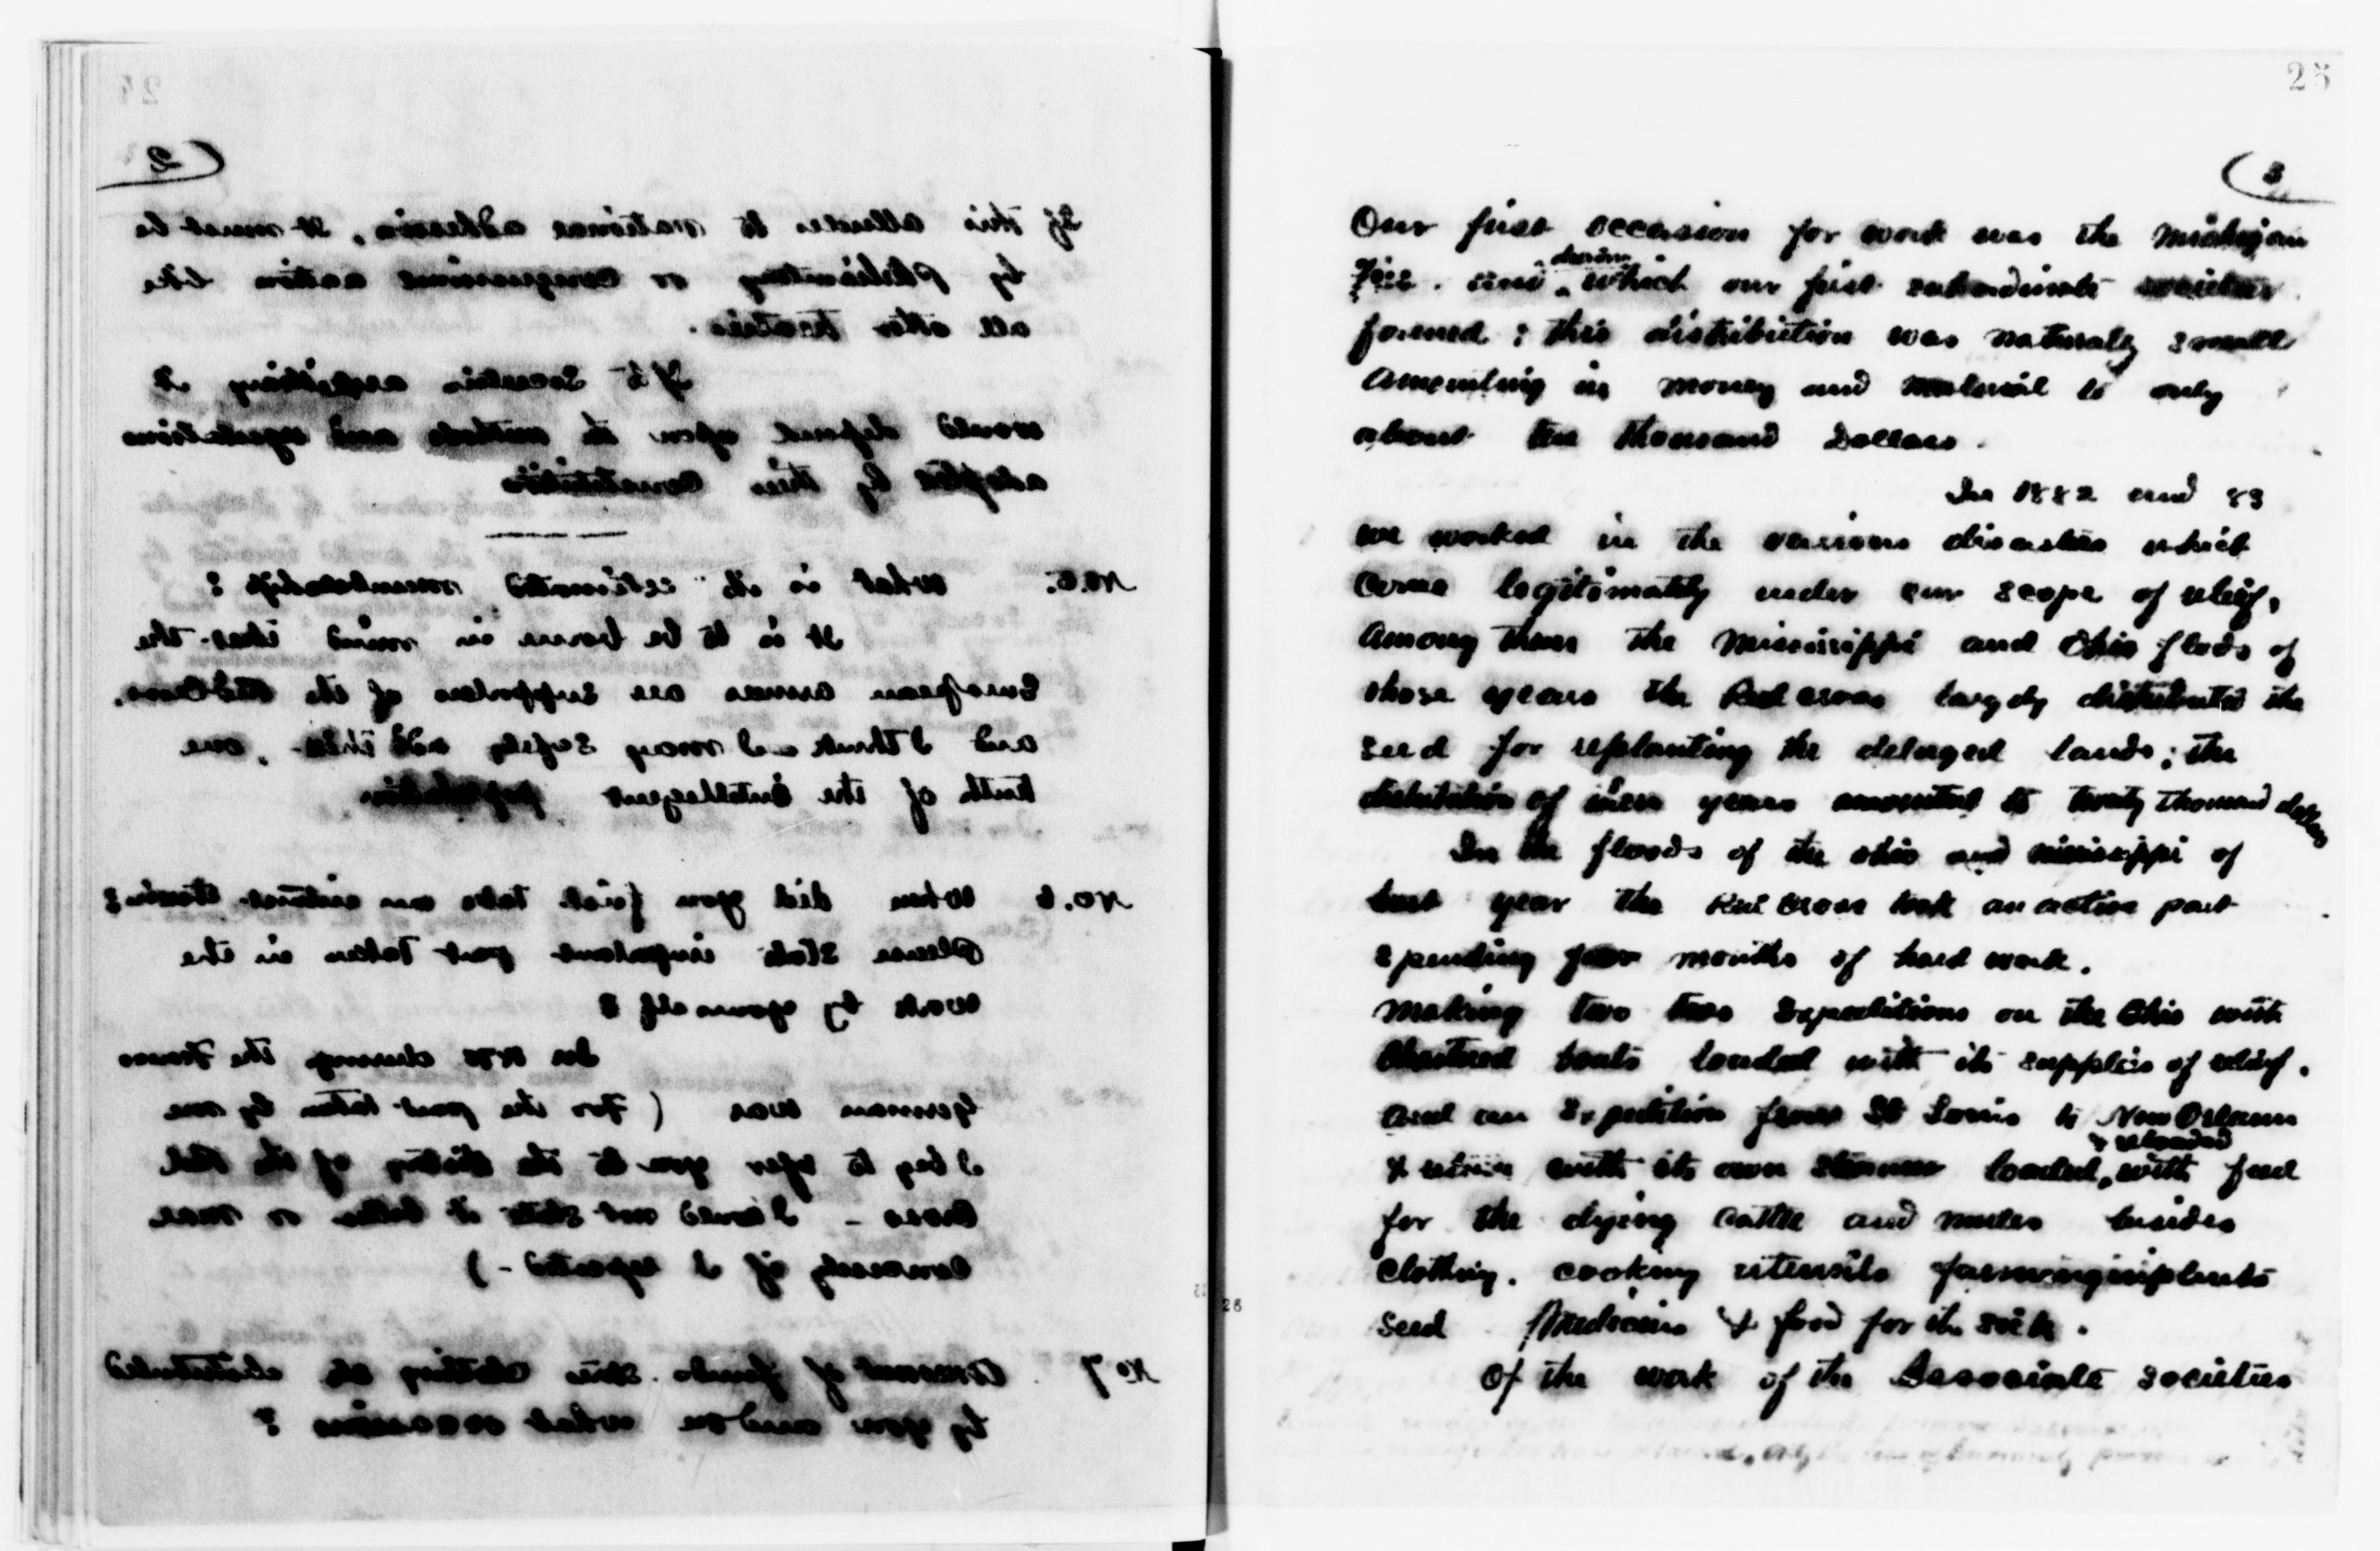 24
(2
If this alludes to national adhesion, it must be
by plenipotentiary or congressional action like
all other treaties.
If to societies anything it
would depend upon the methods and regulations
adopted by their constitution
No. 5. What is its estimated membership?
It is to be borne in mind that the
European armies are supporters of the Red Cross,
and I think we may safely add this, one
tenth of the intelligent population
No. 6 When did you first take an interest therein?
Please state important part taken in the
work by yourself?
In 1870 during the Franco
German war (for the part taken by me
I beg to refer you to the History of the Red
Cross – I could not state it better or more
concisely if I repeated –)
No 7 Amount of funds. stores clothing etc distributed
by you and on what occasions?
25
(3
Our first occasion for work was the Michigan
Fire. and which our first subordinate societies
during
formed; this distribution was naturaly small
Amounting in money and material to only
about ten thousand Dollars.
In 1882 and 83
we worked in the various disasters which
came legitimately under our scope of relief,
Among them the Mississippi and Ohio floods of
those years the Red Cross largely distributed the
seed for replanting the deluged lands; the
distribution of these years amounted to twenty thousand dollars
In the floods of the Ohio and Mississippi of
last year the Red Cross took an active part
spending four months of hard work.
Making two two Expeditions on the Ohio with
Chartered boats loaded with its supplies of relief.
And an Expedition from St Louis to New Orleans
& reloaded
& return with its own steamer loaded, with feed
for the dying cattle and mules besides
Clothing. cooking utensils farming implents
seed Medicines & food for the sick.
Of the work of the Associate Societies
26